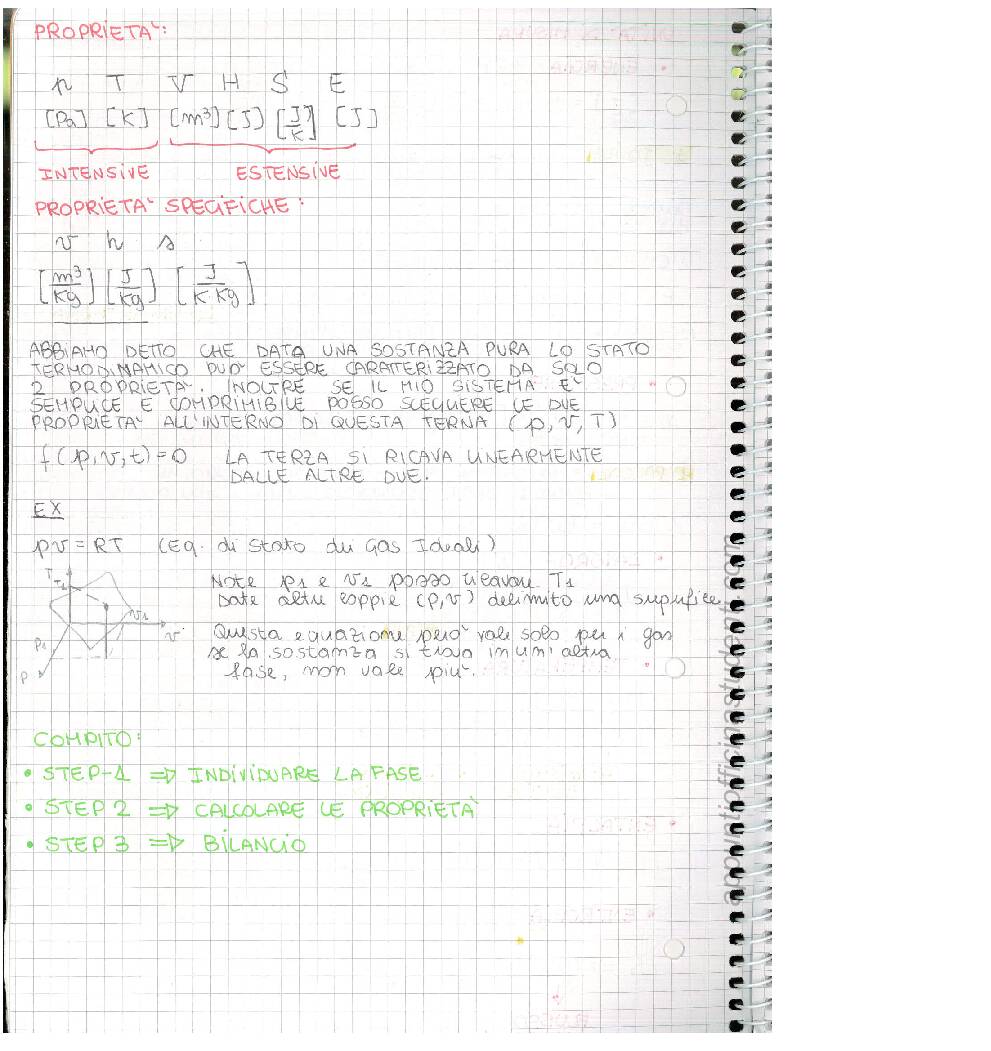 PROPRIETA':
p T V H S E
[Pa] [K] [m³] [J] [J/K] [J]
INTENSIVE ESTENSIVE
PROPRIETA' SPECIFICHE:
v h s
[m³/Kg] [J/Kg] [J/K·Kg]
ABBIAMO DETTO CHE DATA UNA SOSTANZA PURA LO STATO
TERMODINAMICO PUO' ESSERE CARATTERIZZATO DA SOLO
2 PROPRIETA'. INOLTRE SE IL MIO SISTEMA E'
SEMPLICE E COMPRIMIBILE POSSO SCEGLIERE LE DUE
PROPRIETA' ALL'INTERNO DI QUESTA TERNA (p, v, T)
f(p,v,t)=0 LA TERZA SI RICAVA LINEARMENTE
DALLE ALTRE DUE.
EX
pv = RT (Eq. di Stato dei Gas Ideali)
T
T1
v1
v
p1
p
Note p1 e v1 posso ricavare T1
Date altre coppie (p,v) delimito una superfice
Questa equazione pero' vale solo per i gas
se la sostanza si trova in un'altra
fase, non vale piu'.
COMPITO:
• STEP-1 => INDIVIDUARE LA FASE
• STEP 2 => CALCOLARE LE PROPRIETA'
• STEP 3 => BILANCIO
appuntiofficinastudenti.com